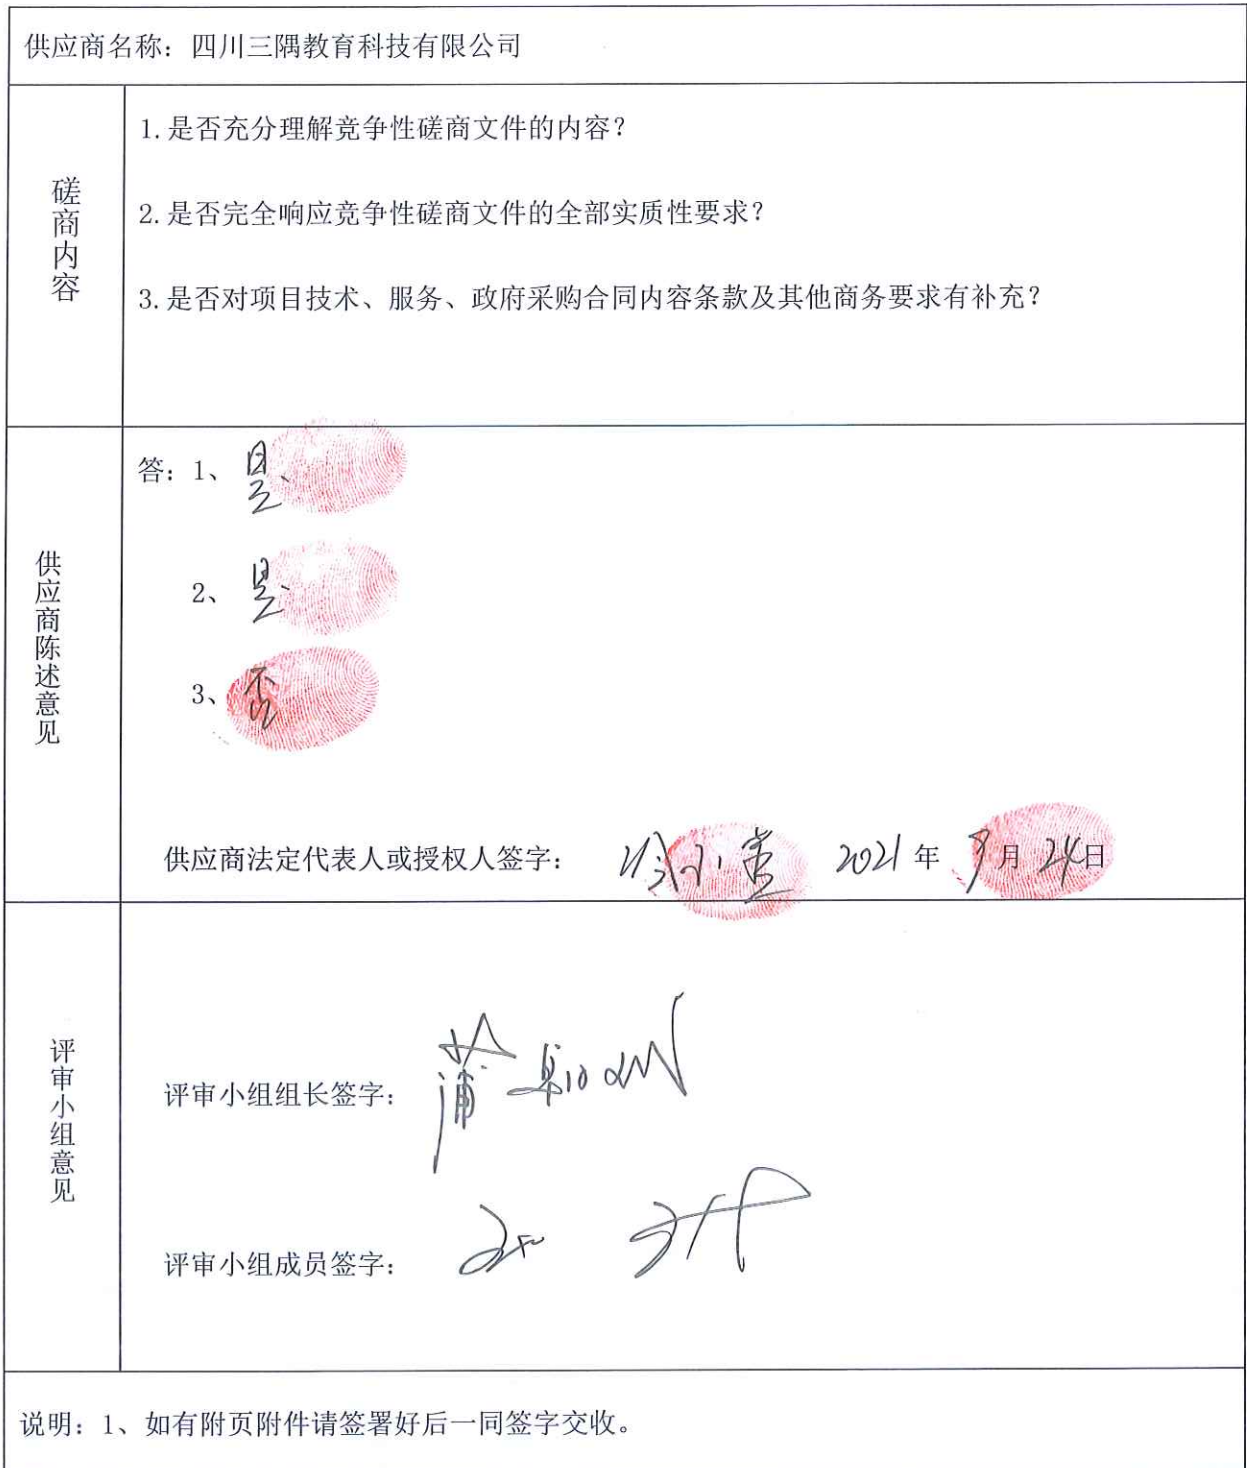 供应商名称：四川三隅教育科技有限公司
磋商内容
1.是否充分理解竞争性磋商文件的内容？
2.是否完全响应竞争性磋商文件的全部实质性要求？
3.是否对项目技术、服务、政府采购合同内容条款及其他商务要求有补充？
供应商陈述意见
答：1、是
2、是
3、否
供应商法定代表人或授权人签字： 2021年 月24日
评审小组意见
评审小组组长签字：
评审小组成员签字：
说明：1、如有附页附件请签署好后一同签字交收。